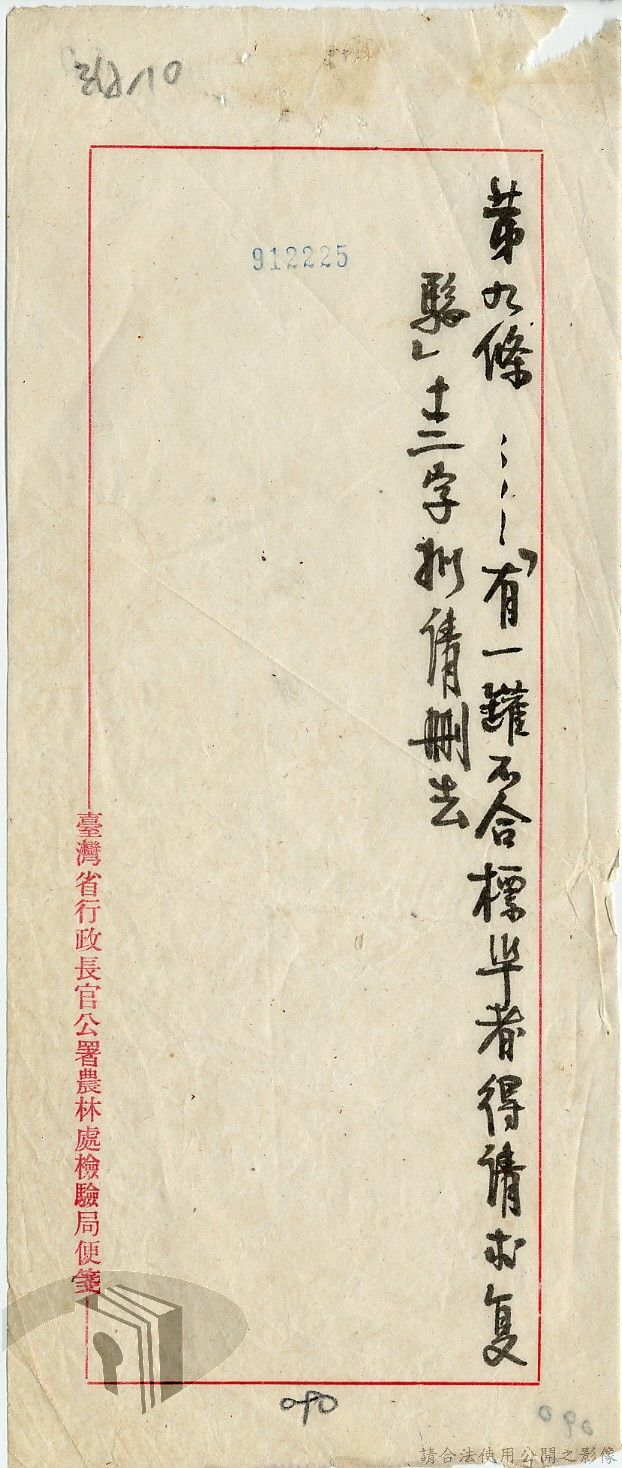 第九條……「有一罐不合標準者得請求复
驗」十三字拟請刪去
912225
臺灣省行政長官公署農林處檢驗局便箋
090
090
請合法使用公開之影像